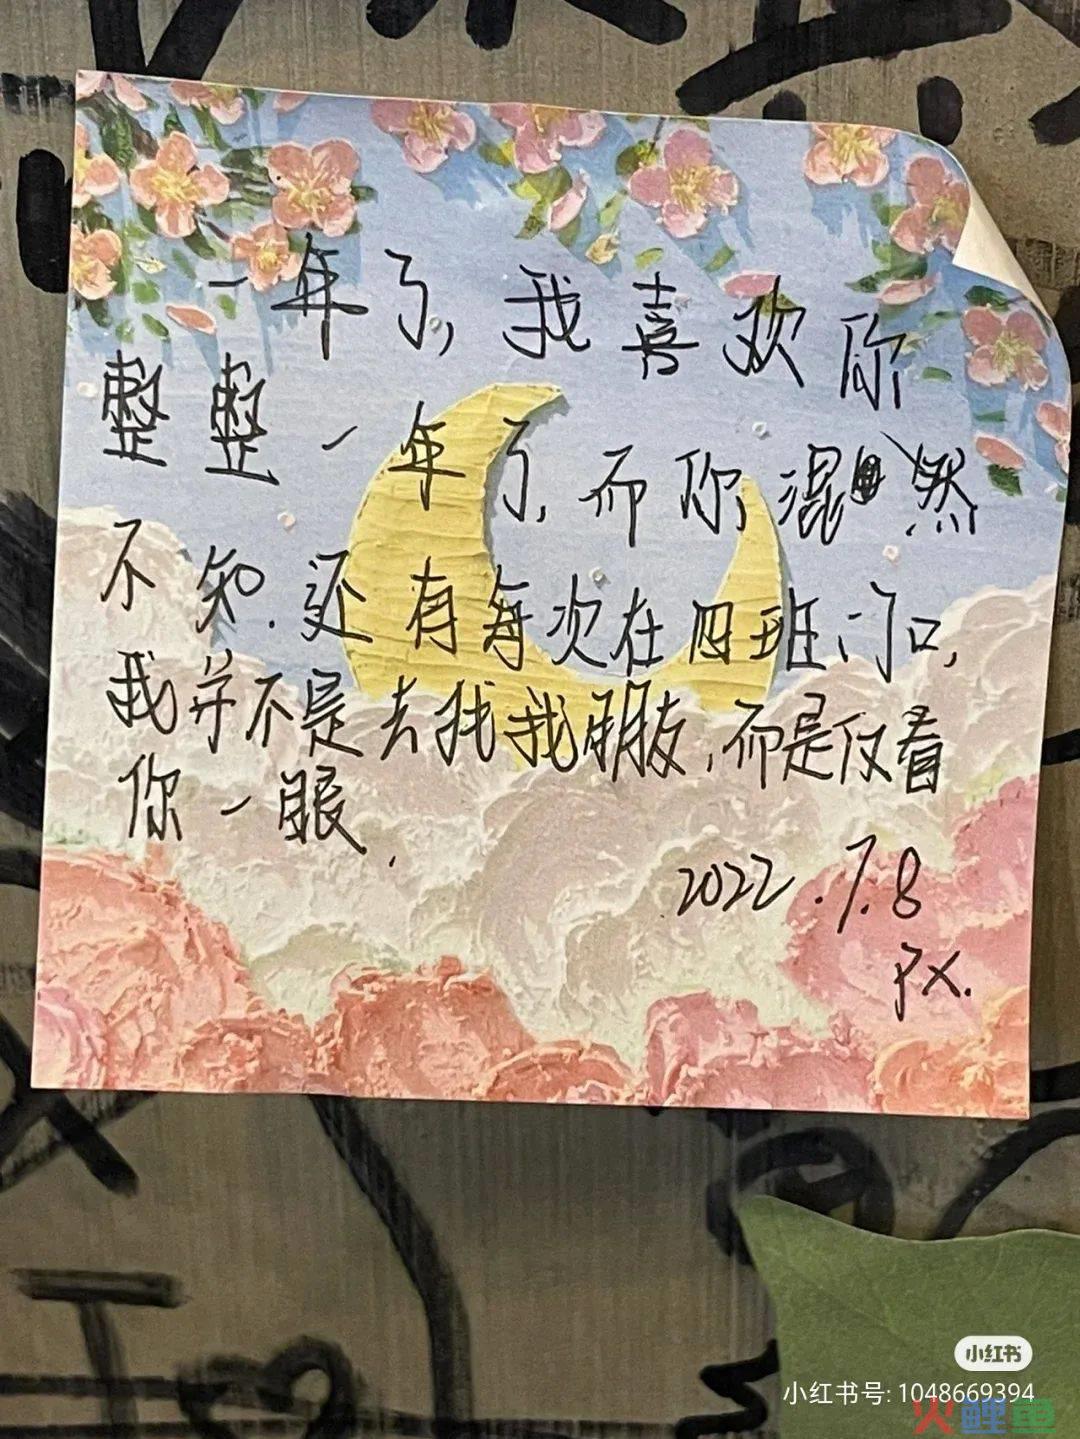 一年了,我喜欢你
整整一年了,而你混然
不知.还有每次在四班门口,
我并不是去找我朋友,而是仅看
你一眼.
2022.7.8
PX.
小红书
小红书号: 1048669394
火鲤鱼